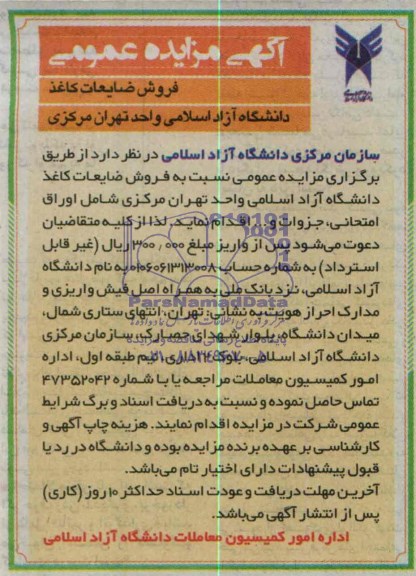 آگهی مزایده عمومی
فروش ضایعات کاغذ
دانشگاه آزاد اسلامی واحد تهران مرکزی
سازمان مرکزی دانشگاه آزاد اسلامی در نظر دارد از طریق
برگزاری مزایده عمومی نسبت به فروش ضایعات کاغذ
دانشگاه آزاد اسلامی واحد تهران مرکزی شامل اوراق
امتحانی، جزوات و... اقدام نماید. لذا از کلیه متقاضیان
دعوت می‌شود پس از واریز مبلغ ۳۰۰٫۰۰۰ ریال (غیر قابل
استرداد) به شماره حساب به نام دانشگاه
آزاد اسلامی، نزد بانک ملی به همراه اصل فیش واریزی و
مدارک احراز هویت به نشانی: تهران، انتهای ستاری شمال،
میدان دانشگاه، بلوار شهدای حصارک، سازمان مرکزی
دانشگاه آزاد اسلامی، بلوک اداری، نیم طبقه اول، اداره
امور کمیسیون معاملات مراجعه یا با شماره ۴۷۳۵۲۰۴۲
تماس حاصل نموده و نسبت به دریافت اسناد و برگ شرایط
عمومی شرکت در مزایده اقدام نمایند. هزینه چاپ آگهی و
کارشناسی بر عهده برنده مزایده بوده و دانشگاه در رد یا
قبول پیشنهادات دارای اختیار تام می‌باشد.
آخرین مهلت دریافت و عودت اسناد حداکثر ۱۰ روز (کاری)
پس از انتشار آگهی می‌باشد.
اداره امور کمیسیون معاملات دانشگاه آزاد اسلامی
ParsNamadData